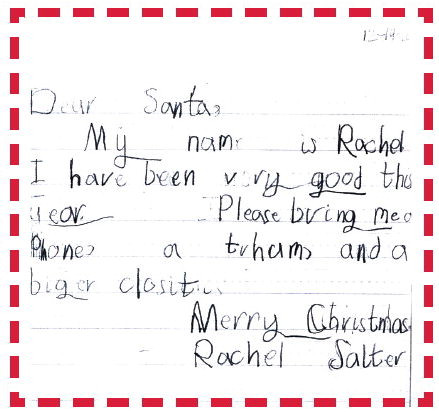 Dear Santa,
My name is Rachel
I have been very good this
year Please bring me a
Phone, a and a
biger closit.
Merry Christmas
Rachel Salter